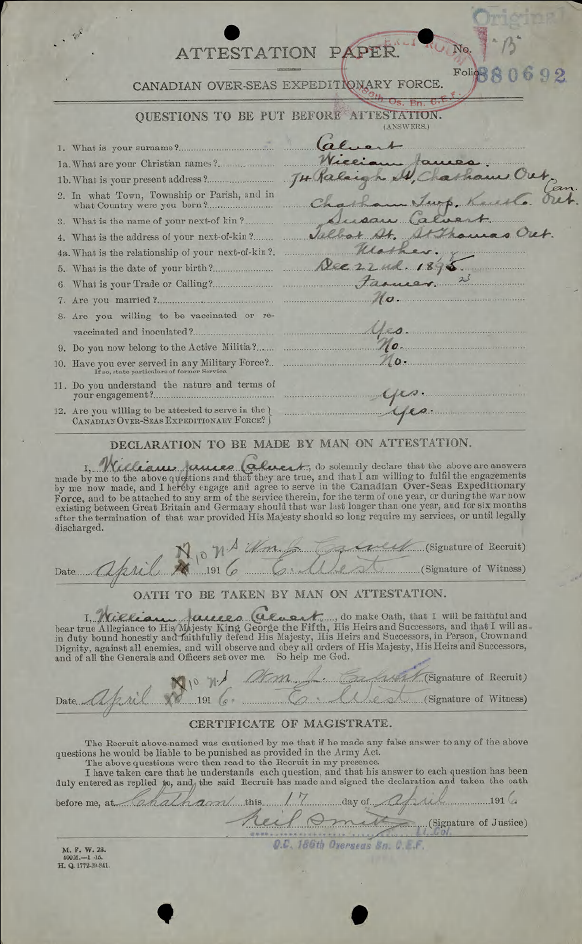 Original
ATTESTATION PAPER.
No.
"B"
Folio
880692
CANADIAN OVER-SEAS EXPEDITIONARY FORCE.
186th Os. Bn. C.E.F.
QUESTIONS TO BE PUT BEFORE ATTESTATION.
(ANSWERS.)
1. What is your surname? Calvert
1a. What are your Christian names? William James.
1b. What is your present address? 74 Raleigh St, Chatham Ont.
2. In what Town, Township or Parish, and in
what Country were you born? Chatham Twp. Kent Co. Ont. Can.
3. What is the name of your next-of kin? Susan Calvert.
4. What is the address of your next-of-kin? Talbot St. St Thomas Ont.
4a. What is the relationship of your next-of-kin? Mother.
5. What is the date of your birth? Dec 22nd. 1895
6. What is your Trade or Calling? Farmer.
7. Are you married? No.
8. Are you willing to be vaccinated or re-
vaccinated and inoculated? Yes.
9. Do you now belong to the Active Militia? No.
10. Have you ever served in any Military Force? No.
If so, state particulars of former Service
11. Do you understand the nature and terms of
your engagement? Yes.
12. Are you willing to be attested to serve in the
CANADIAN OVER-SEAS EXPEDITIONARY FORCE? Yes.
DECLARATION TO BE MADE BY MAN ON ATTESTATION.
I, William James Calvert, do solemnly declare that the above are answers
made by me to the above questions and that they are true, and that I am willing to fulfil the engagements
by me now made, and I hereby engage and agree to serve in the Canadian Over-Seas Expeditionary
Force, and to be attached to any arm of the service therein, for the term of one year, or during the war now
existing between Great Britain and Germany should that war last longer than one year, and for six months
after the termination of that war provided His Majesty should so long require my services, or until legally
discharged.
Wm J. Calvert (Signature of Recruit)
Date April 10 1916 E. West (Signature of Witness)
OATH TO BE TAKEN BY MAN ON ATTESTATION.
I, William James Calvert, do make Oath, that I will be faithful and
bear true Allegiance to His Majesty King George the Fifth, His Heirs and Successors, and that I will as
in duty bound honestly and faithfully defend His Majesty, His Heirs and Successors, in Person, Crown and
Dignity, against all enemies, and will observe and obey all orders of His Majesty, His Heirs and Successors,
and of all the Generals and Officers set over me. So help me God.
Wm J. Calvert (Signature of Recruit)
Date April 10 1916 E. West (Signature of Witness)
CERTIFICATE OF MAGISTRATE.
The Recruit above-named was cautioned by me that if he made any false answer to any of the above
questions he would be liable to be punished as provided in the Army Act.
The above questions were then read to the Recruit in my presence.
I have taken care that he understands each question, and that his answer to each question has been
duly entered as replied to, and the said Recruit has made and signed the declaration and taken the oath
before me, at Chatham this 17 day of April 1916
Neil Smith (Signature of Justice)
Lt. Col.
O.C. 186th Overseas Bn. C.E.F.
M. F. W. 23.
H. Q. 1772-39-841.